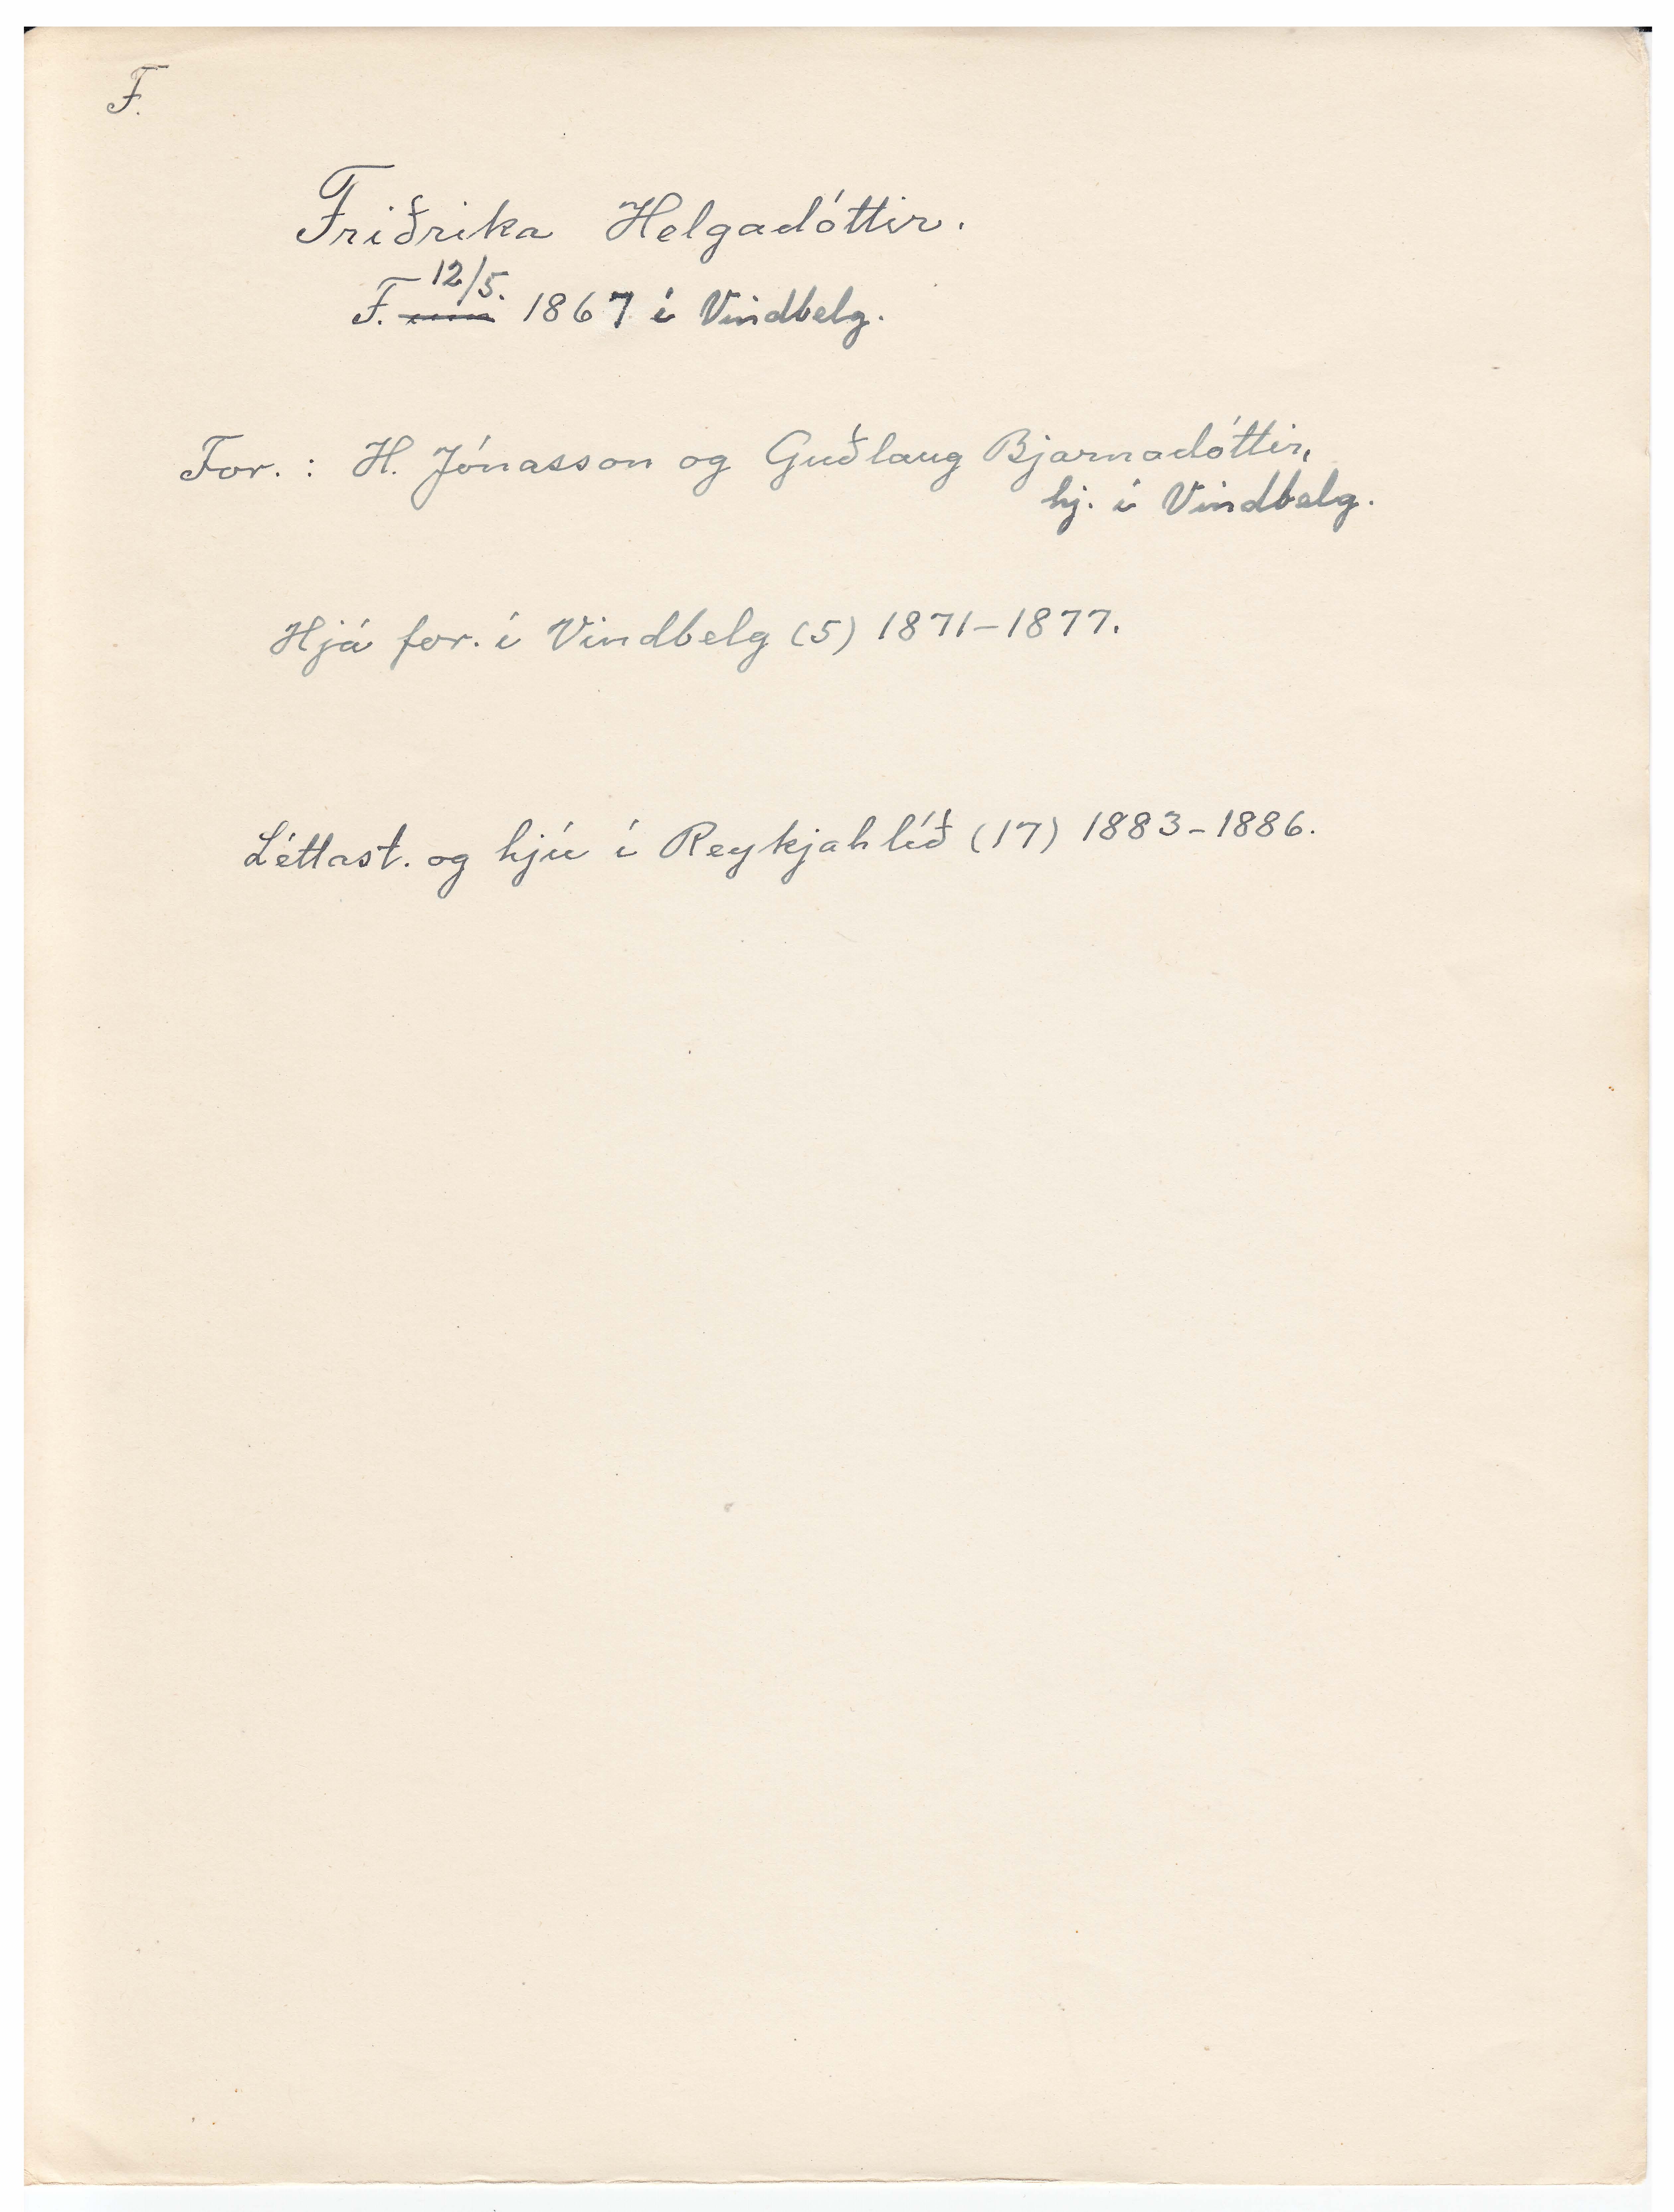 F.
Friðrika Helgadóttir.
F. 12/5. 1867 í Vindbelg.
For. : H. Jónasson og Guðlaug Bjarnadóttir,
hj. í Vindbelg.
Hjá for. í Vindbelg (5) 1871-1877.
Léttast. og hjú í Reykjahlíð (17) 1883-1886.